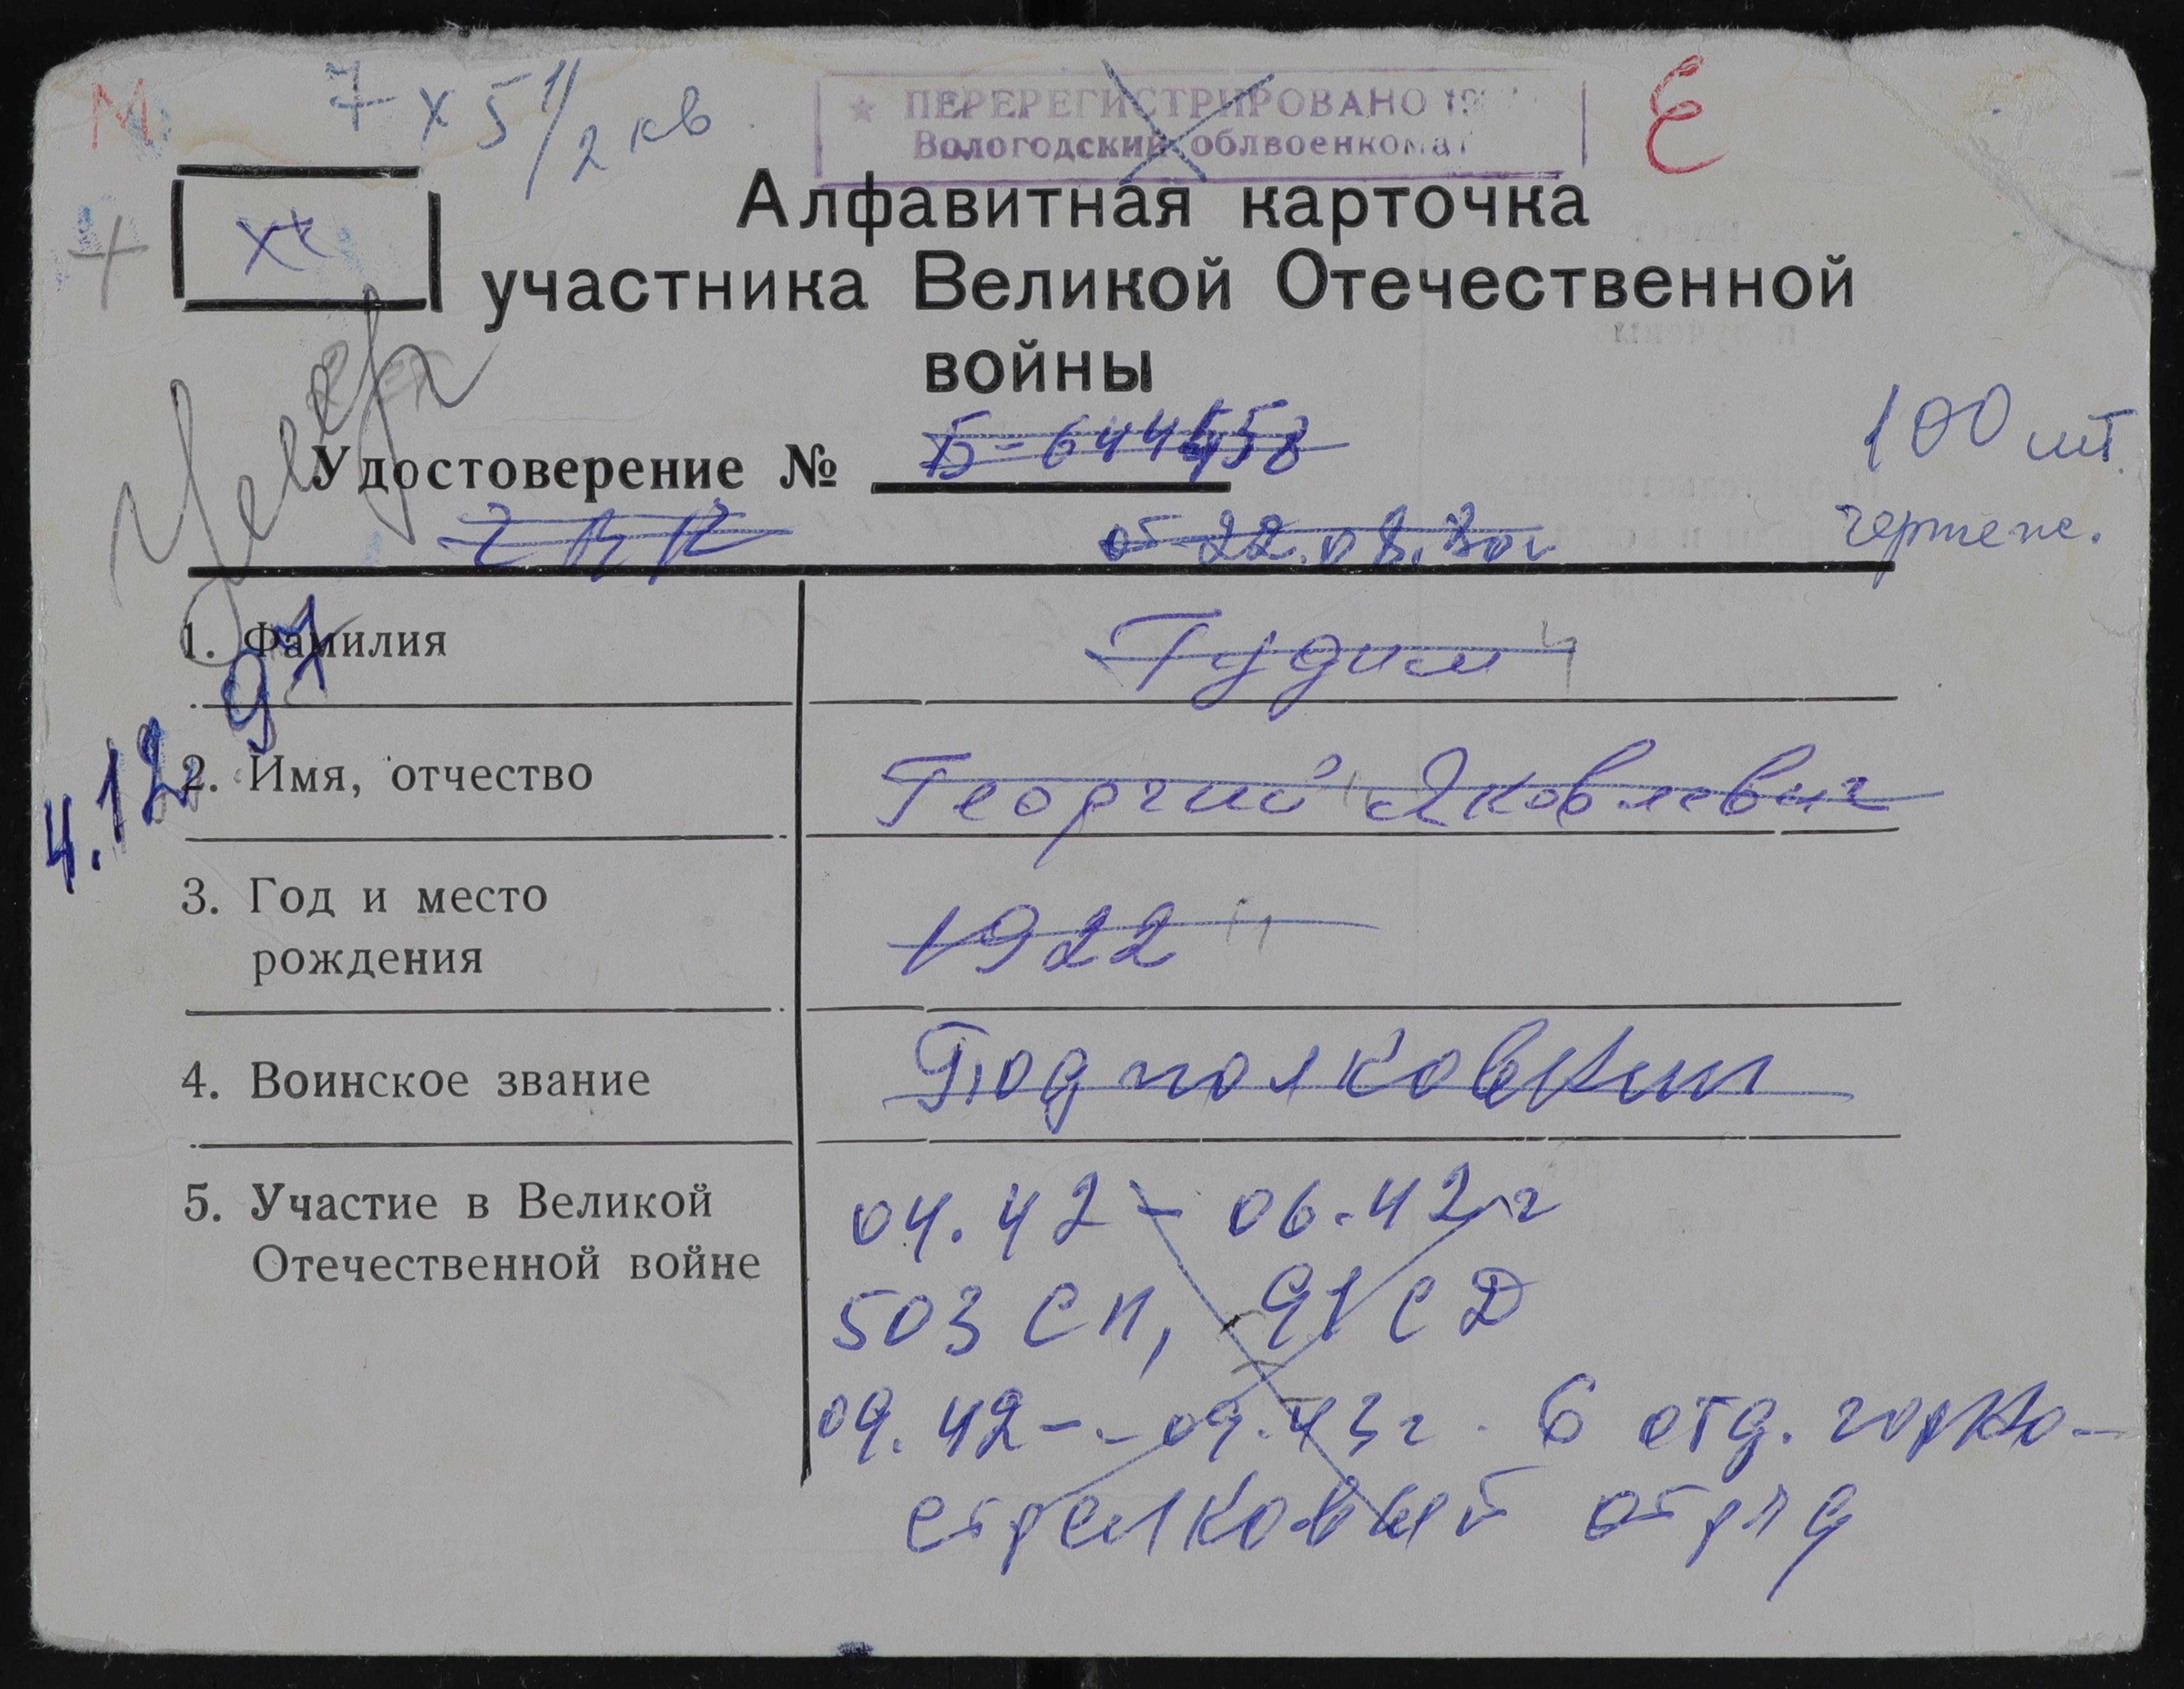 М 7 х 5 1/2 кв
ПЕРЕРЕГИСТРИРОВАНО 19
Вологодский облвоенкомат
Е
Алфавитная карточка
участника Великой Отечественной
войны
Удостоверение №
от 22.08.80г
100 шт.
4.12.97
1. Фамилия Гудим
2. Имя, отчество Георгий Яковлевич
3. Год и место
рождения 1922
4. Воинское звание Подполковник
5. Участие в Великой
Отечественной войне
04.42 - 06.42 г
503 СП, 91 СД
09.42 - 09.43 г. 6 отд. горно-
стрелковый отряд